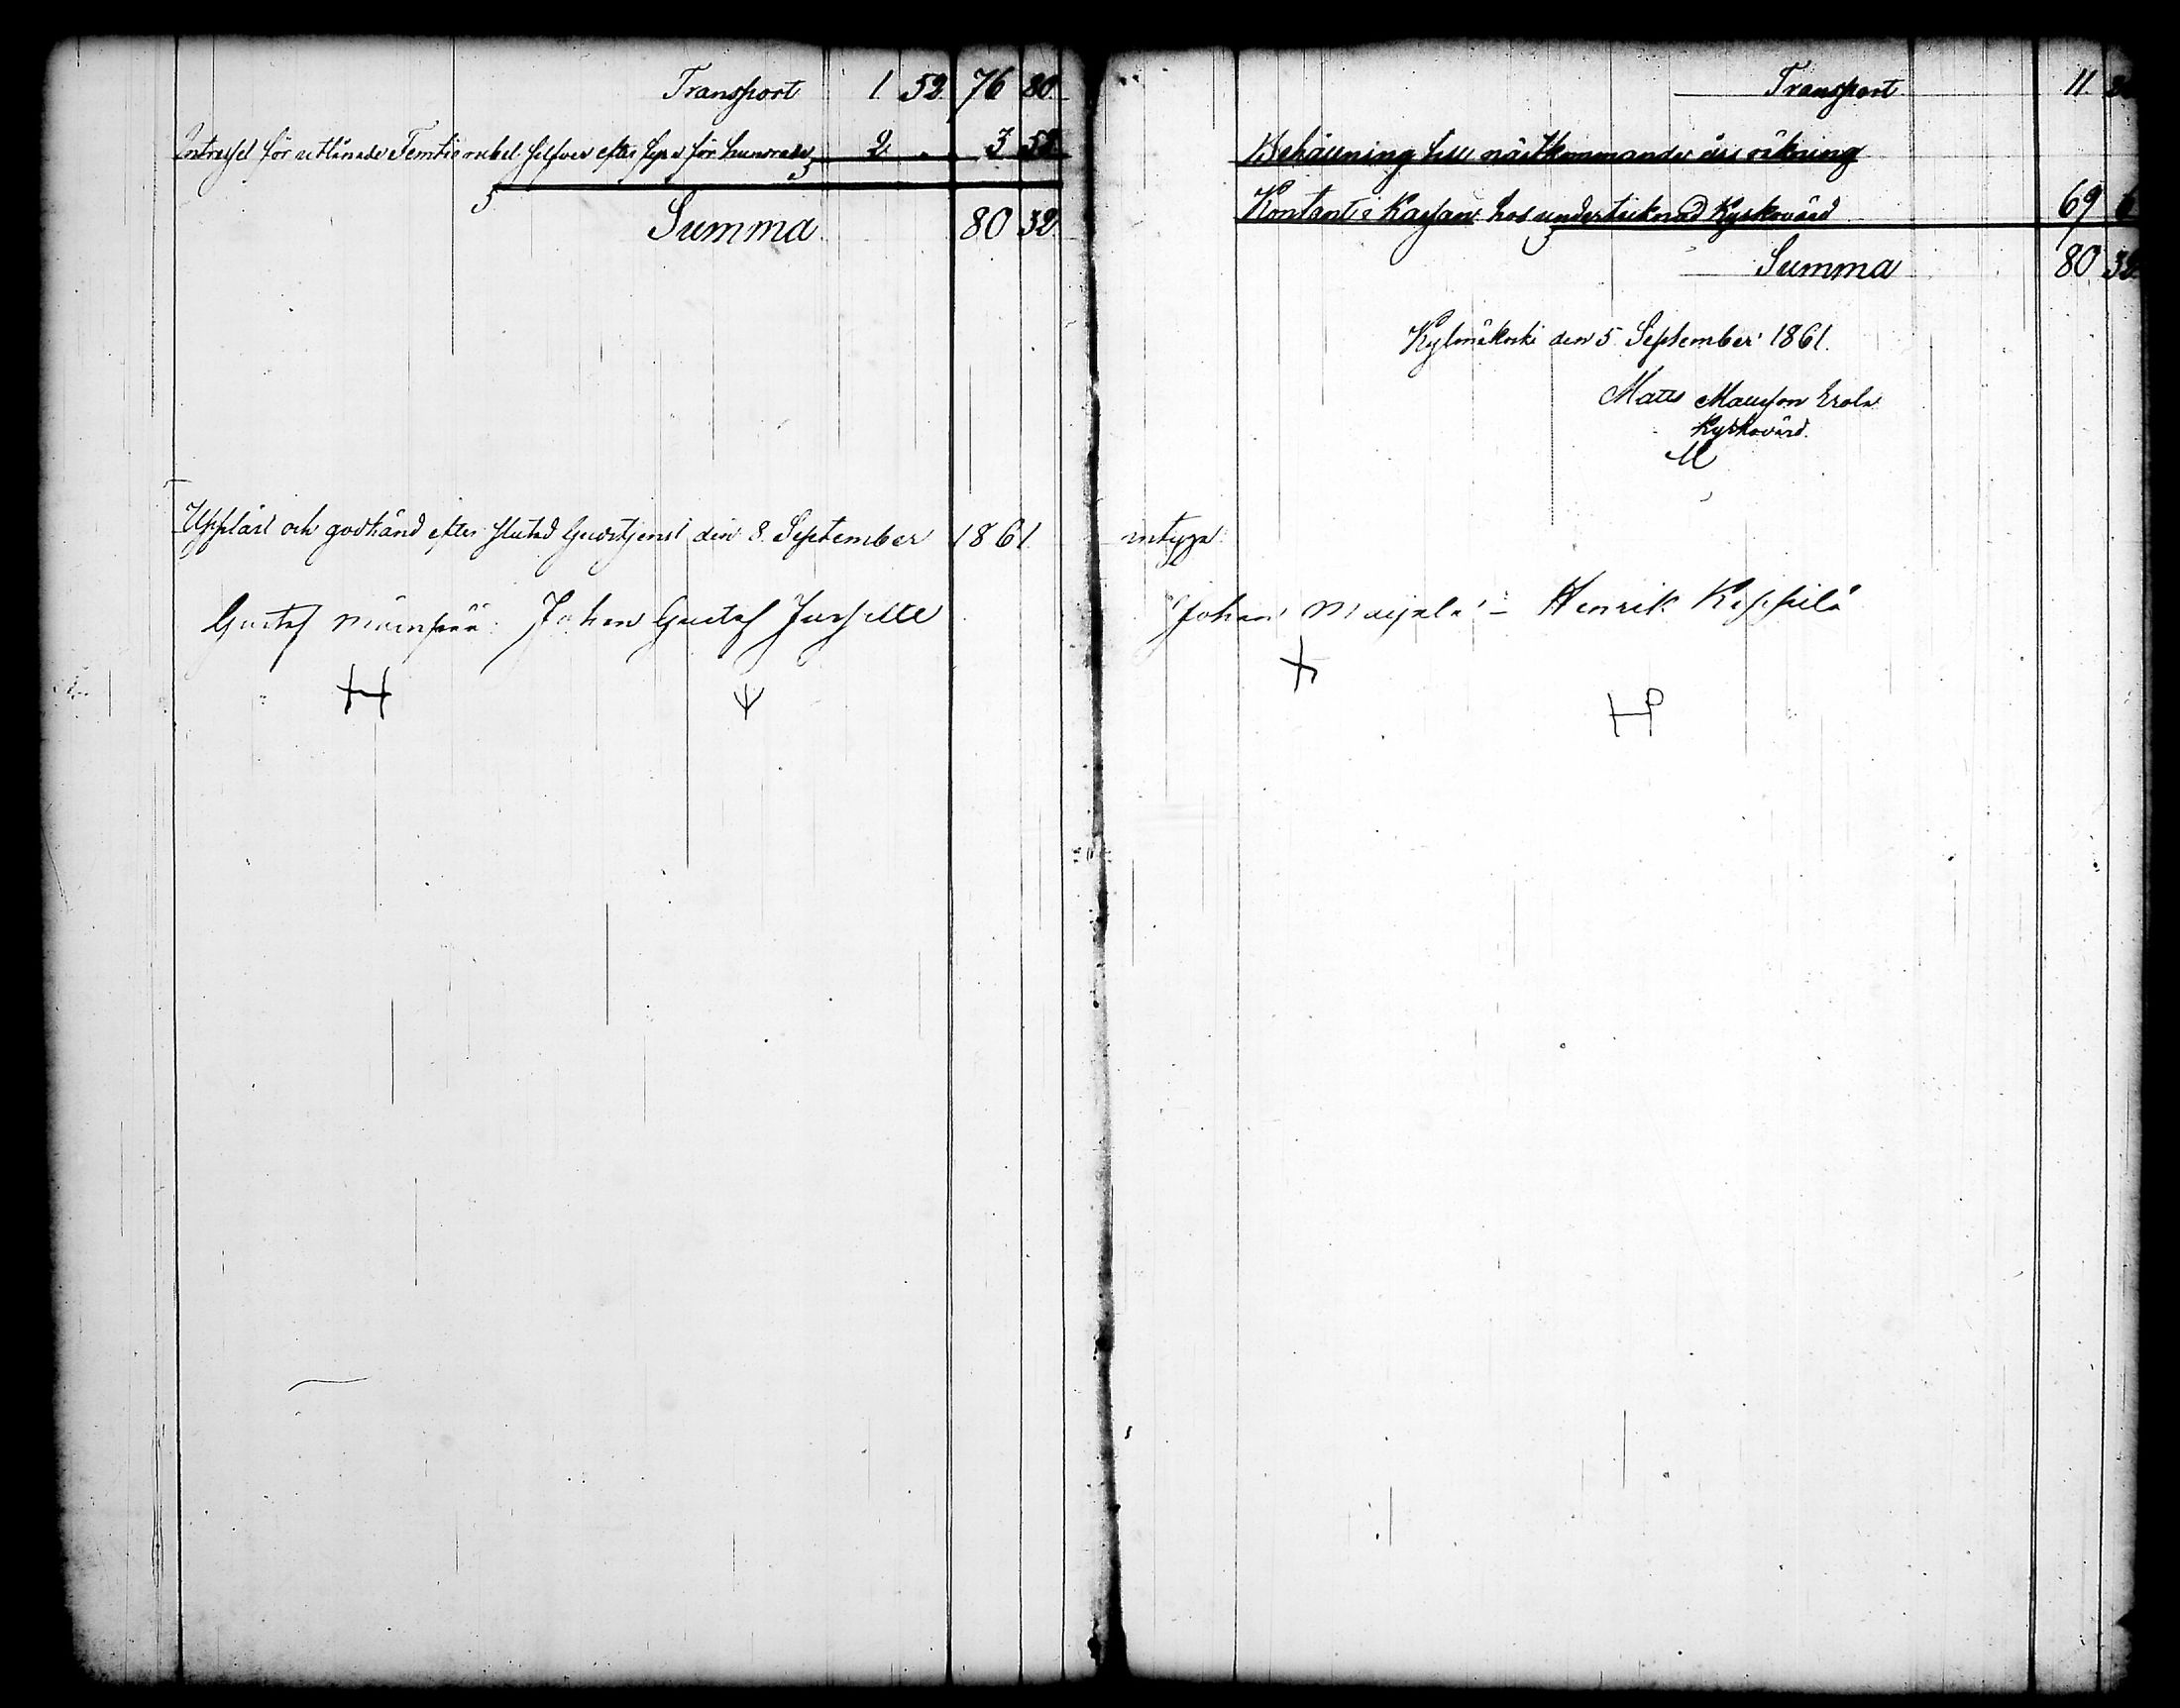 Transport 1. 52. 76 80.
Intressel för utlånade Femtio rubel silfver efter sex för hundrade 2. " 3. 52.
Summa 80 32.
Uppläst och godkänd efter slutad Gudstjenst den 8. September 1861.
Gustaf Johan Gustaf
Transport 11.
Behållning till nästkommande års räkning
Kontant i Kassan hos undertecknad Kyrkovärd 69
Summa 80 32.
Kylmäkoski den 5 September 1861.
Matts Mattsson Erola
Kyrkovärd.
M
intyga:
Johan Henrik